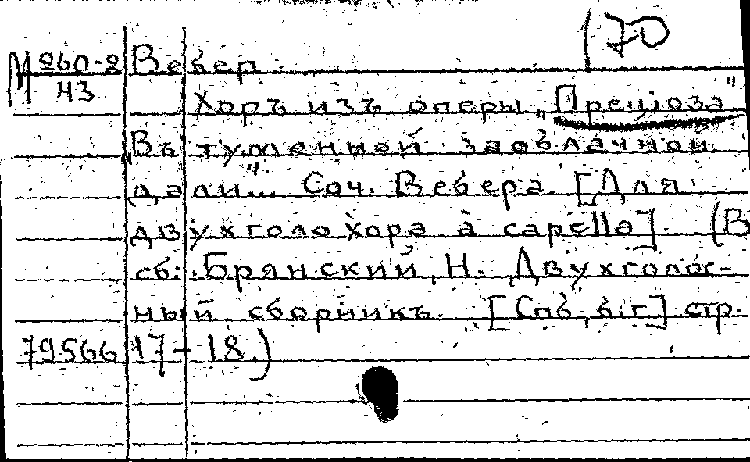 170
М 260-2 Вебер.
Н3
Хоръ изъ оперы „Прецiоза"
Въ туманной заоблачной
дали"... Соч. Вебера. [Для
двухголо хора à capella]. (В
сб.: Брянский, Н. Двухголос-
ный сборникъ. [Спб, б.г.] стр.
79566 17-18.)